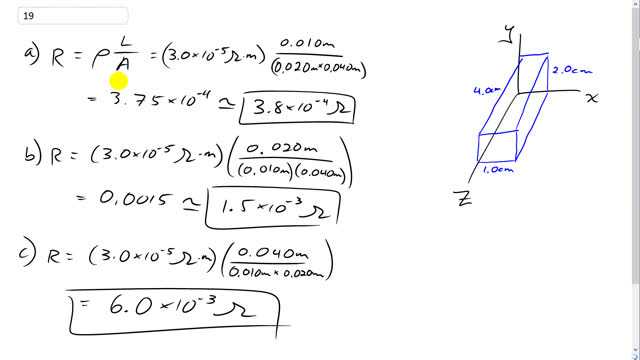 19
a) R = ρ L/A = (3.0×10⁻⁵ Ω·m) 0.010m/(0.020m×0.040m)
= 3.75×10⁻⁴ ≃ 3.8×10⁻⁴ Ω
b) R = (3.0×10⁻⁵ Ω·m) (0.020m/(0.010m)(0.040m))
= 0.0015 ≃ 1.5×10⁻³ Ω
c) R = (3.0×10⁻⁵ Ω·m) (0.040m/0.010m×0.020m)
= 6.0×10⁻³ Ω
y
2.0cm
4.0cm
x
1.0cm
z